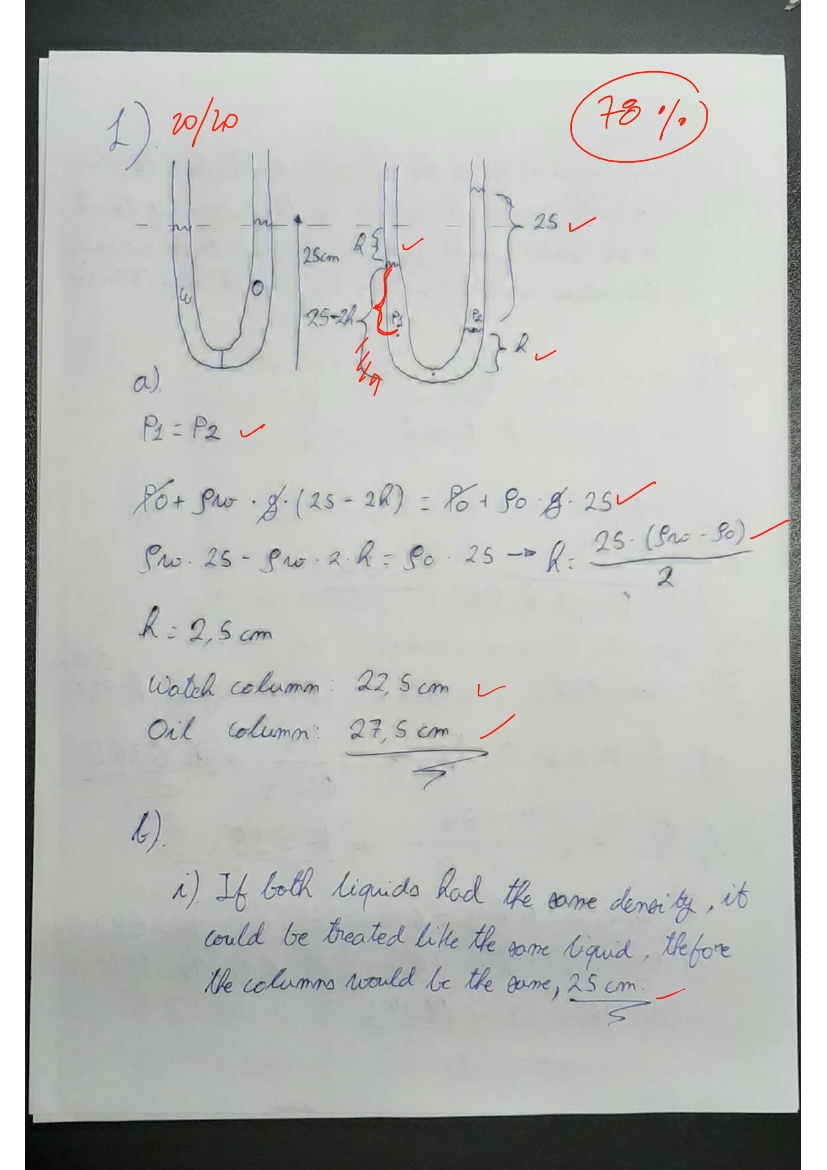 1). 20/20
78 %
25cm
h
25-2h
25
h
W
O
P1
P2
a)
P1 = P2
P0 + ρw · g · (25 - 2h) = P0 + ρo · g · 25
ρw · 25 - ρw · 2 · h = ρo · 25 → h = 25 · (ρw - ρo) / 2
h = 2,5 cm
Watch column: 22,5 cm
Oil column: 27,5 cm
b).
i). If both liquids had the same density, it
could be treated like the same liquid, thefore
the columns would be the same, 25 cm.